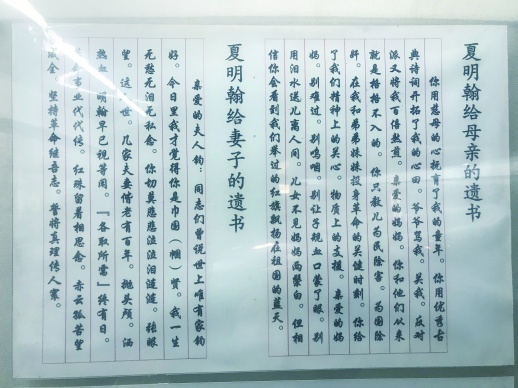 夏明翰给母亲的遗书
你用慈母的心抚育了我的童年。你用优秀古
典诗词开拓了我的心田。爷爷骂我、关我。反动
派又将我百倍煎熬。亲爱的妈妈。你和他们从来
就是格格不入的。你只教儿为民除害。为国除
奸。在我和弟弟妹妹投身革命的关键时刻。你给
了我们精神上的关心。物质上的支援。亲爱的妈
妈。别难过。别呜咽。别让子规血口蒙了眼。别
用泪水送儿离人间。儿女不见妈妈两鬓白。但相
信你会看到我们举过的红旗飘扬在祖国的蓝天。
夏明翰给妻子的遗书
亲爱的夫人钧：同志们曾说世上唯有家钧
好。今日里我才觉得你是巾国（帼）贤。我一生
无愁无泪无私念。你切莫悲悲泣泣泪涟涟。张眼
望。这人世。几家夫妻偕老有百年。抛头颅。洒
热血。明翰早已视等闲。『各取所需』终有日。
事业代代传。红珠留着相思念。赤云孤苦望
成全。坚持革命继吾志。誓将真理传人寰。